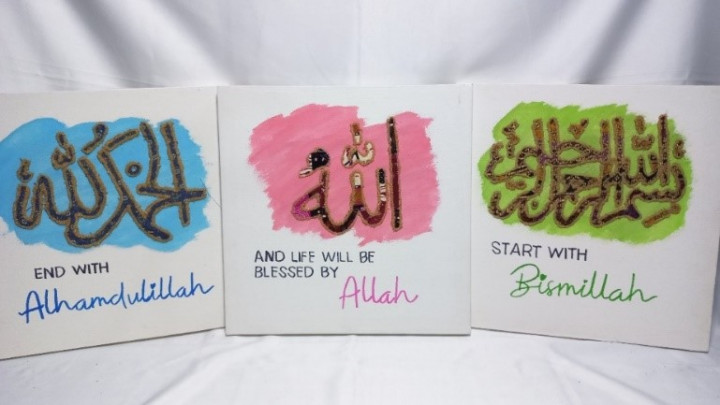 الحمد لله
END WITH
Alhamdulillah
الله
AND LIFE WILL BE
BLESSED BY
Allah
بسم الله الرحمن الرحيم
START WITH
Bismillah